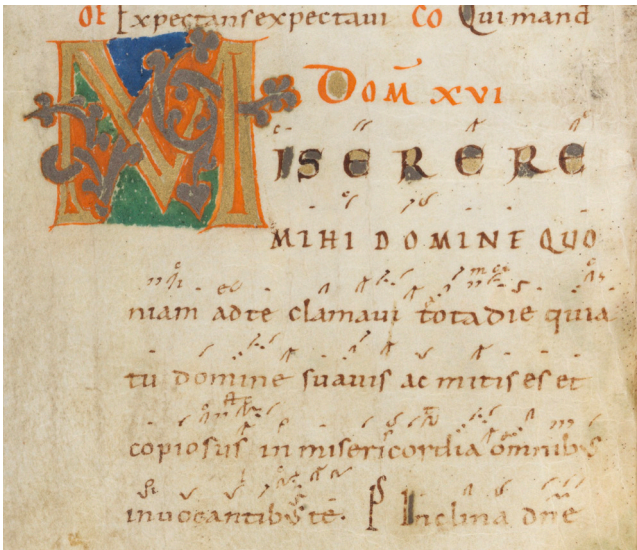 OF Expectans expectaui CO Qui mand
DOM̄ XVI
MISERERE
MIHI DOMINE QUO
niam ad te clamaui tota die quia
tu domine suauis ac mitis es et
copiosus in misericordia omnibus
inuocantibus te. Ps Inclina dn̄e